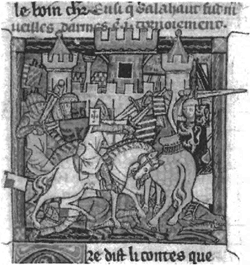 le boin chr Ensi q Galahaut fist m
ueilles darmes tornoiement.
Ore dist li contes que